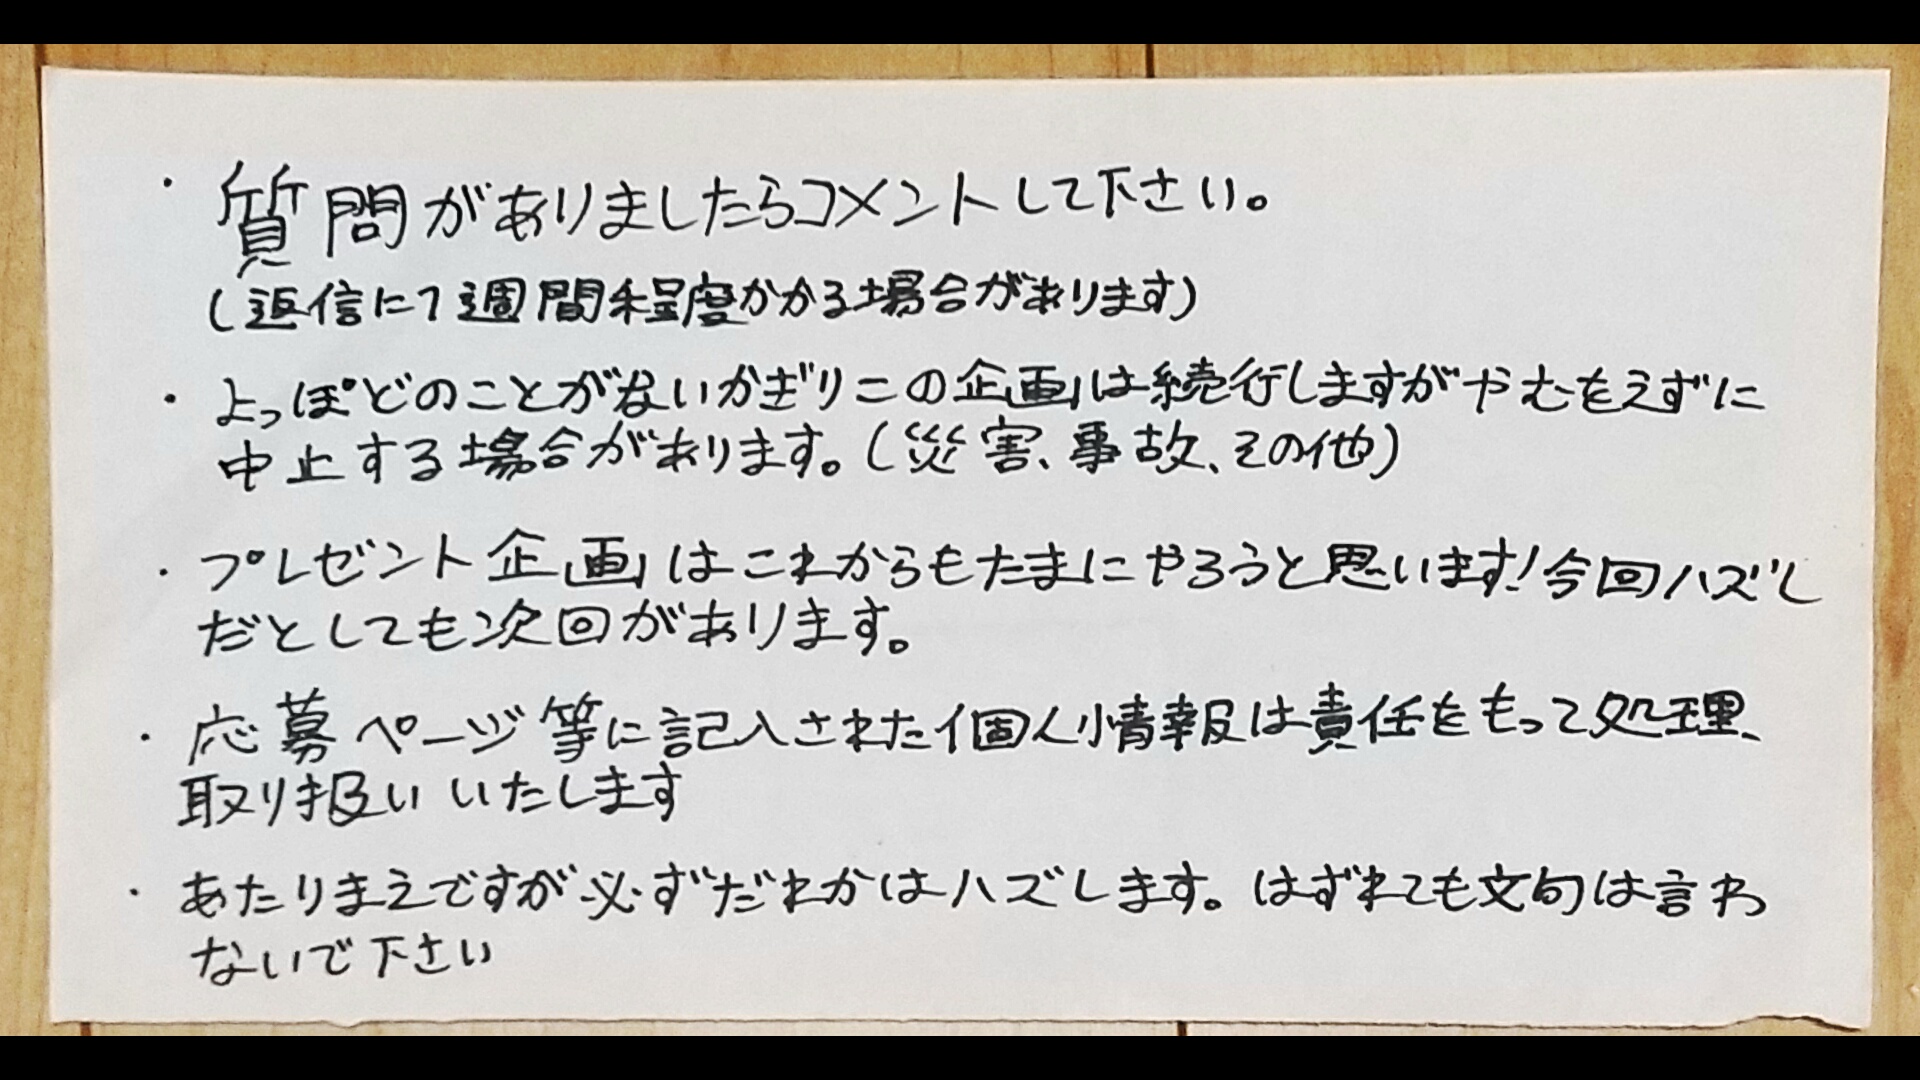 ・質問がありましたらコメントして下さい。
(返信に1週間程度かかる場合があります)
・よっぽどのことがないかぎりこの企画は続行しますがやむをえずに
中止する場合があります。(災害、事故、その他)
・プレゼント企画はこれからもたまにやろうと思います!今回ハズレ
だとしても次回があります。
・応募ページ等に記入された個人情報は責任をもって処理、
取り扱いいたします
・あたりまえですが必ずだれかはハズします。はずれても文句は言わ
ないで下さい